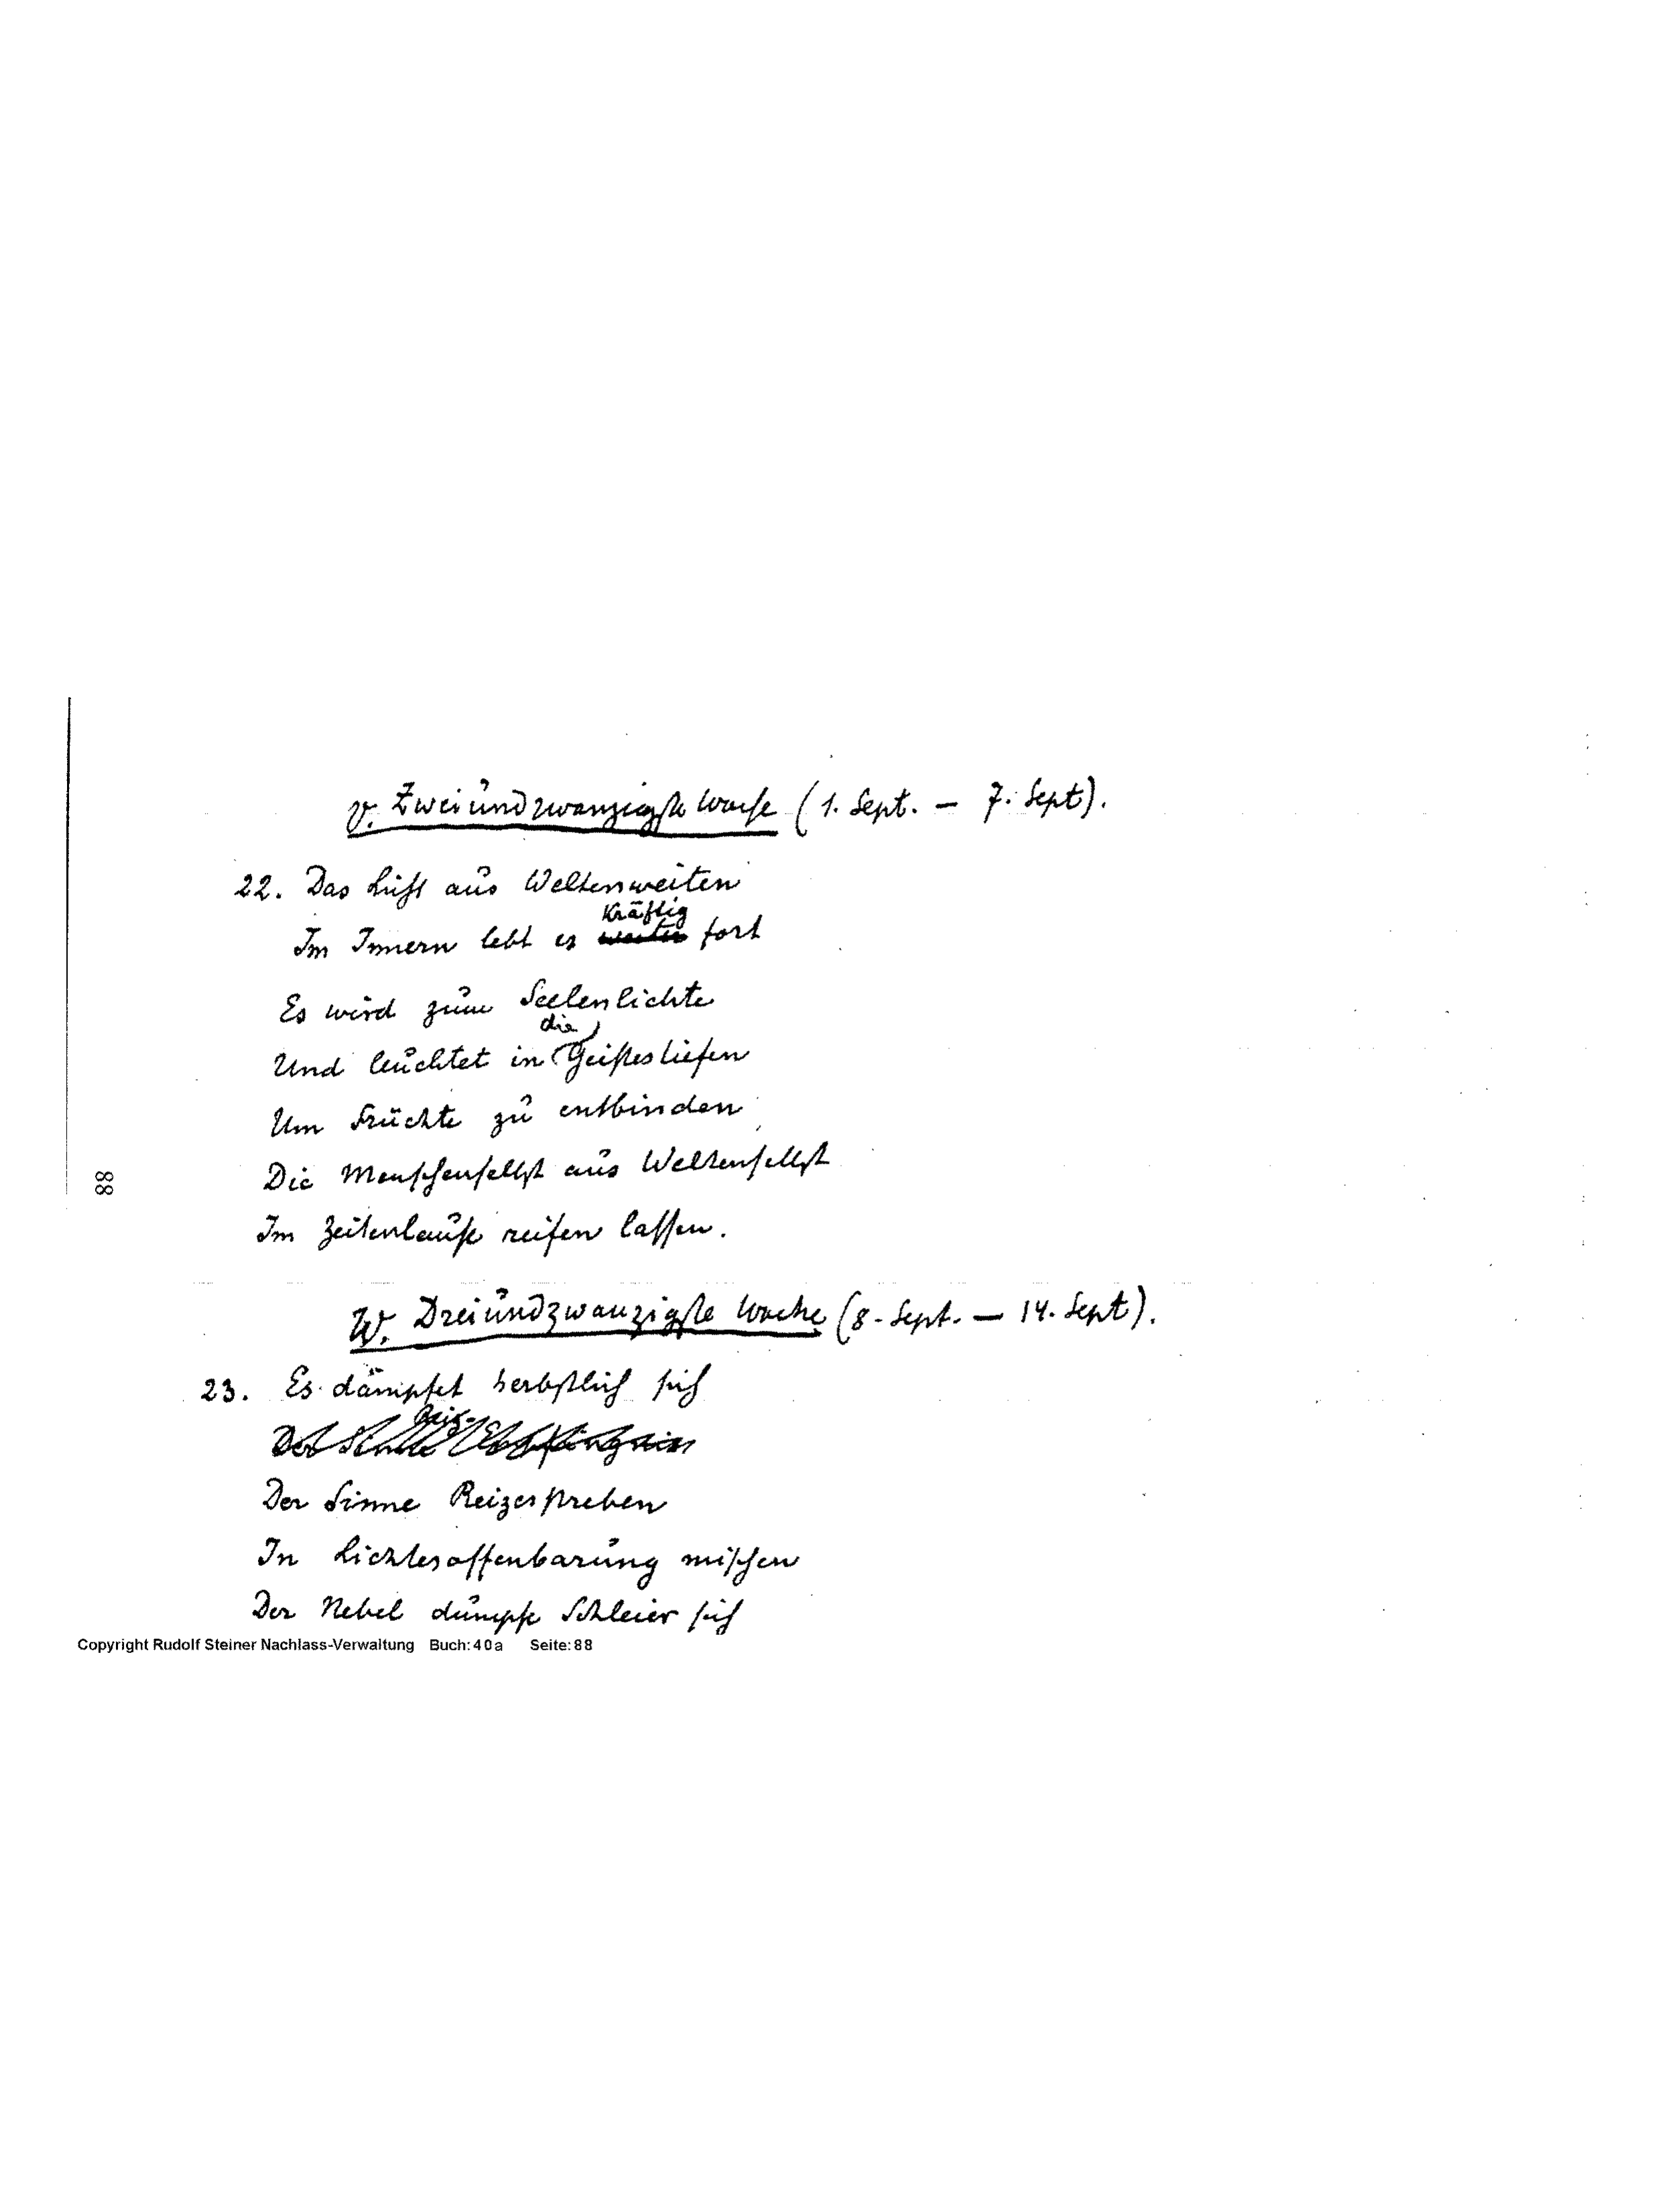 V. Zweiundzwanzigste Woche (1. Sept. – 7. Sept).
22. Das Licht aus Weltenweiten
kräftig
Im Innern lebt es weiter fort
Es wird zum Seelenlichte
die
Und leuchtet in Geistestiefen
Um Früchte zu entbinden
Die Menschenselbst aus Weltenselbst
Im Zeitenlaufe reifen lassen.
88
W. Dreiundzwanzigste Woche (8. Sept. – 14. Sept).
23. Es dämpfet herbstlich sich
Reiz-
Der Sinne
Der Sinne Reizesstreben
In Lichtesoffenbarung mischen
Der Nebel dumpfe Schleier sich
Copyright Rudolf Steiner Nachlass-Verwaltung Buch:40a Seite:88